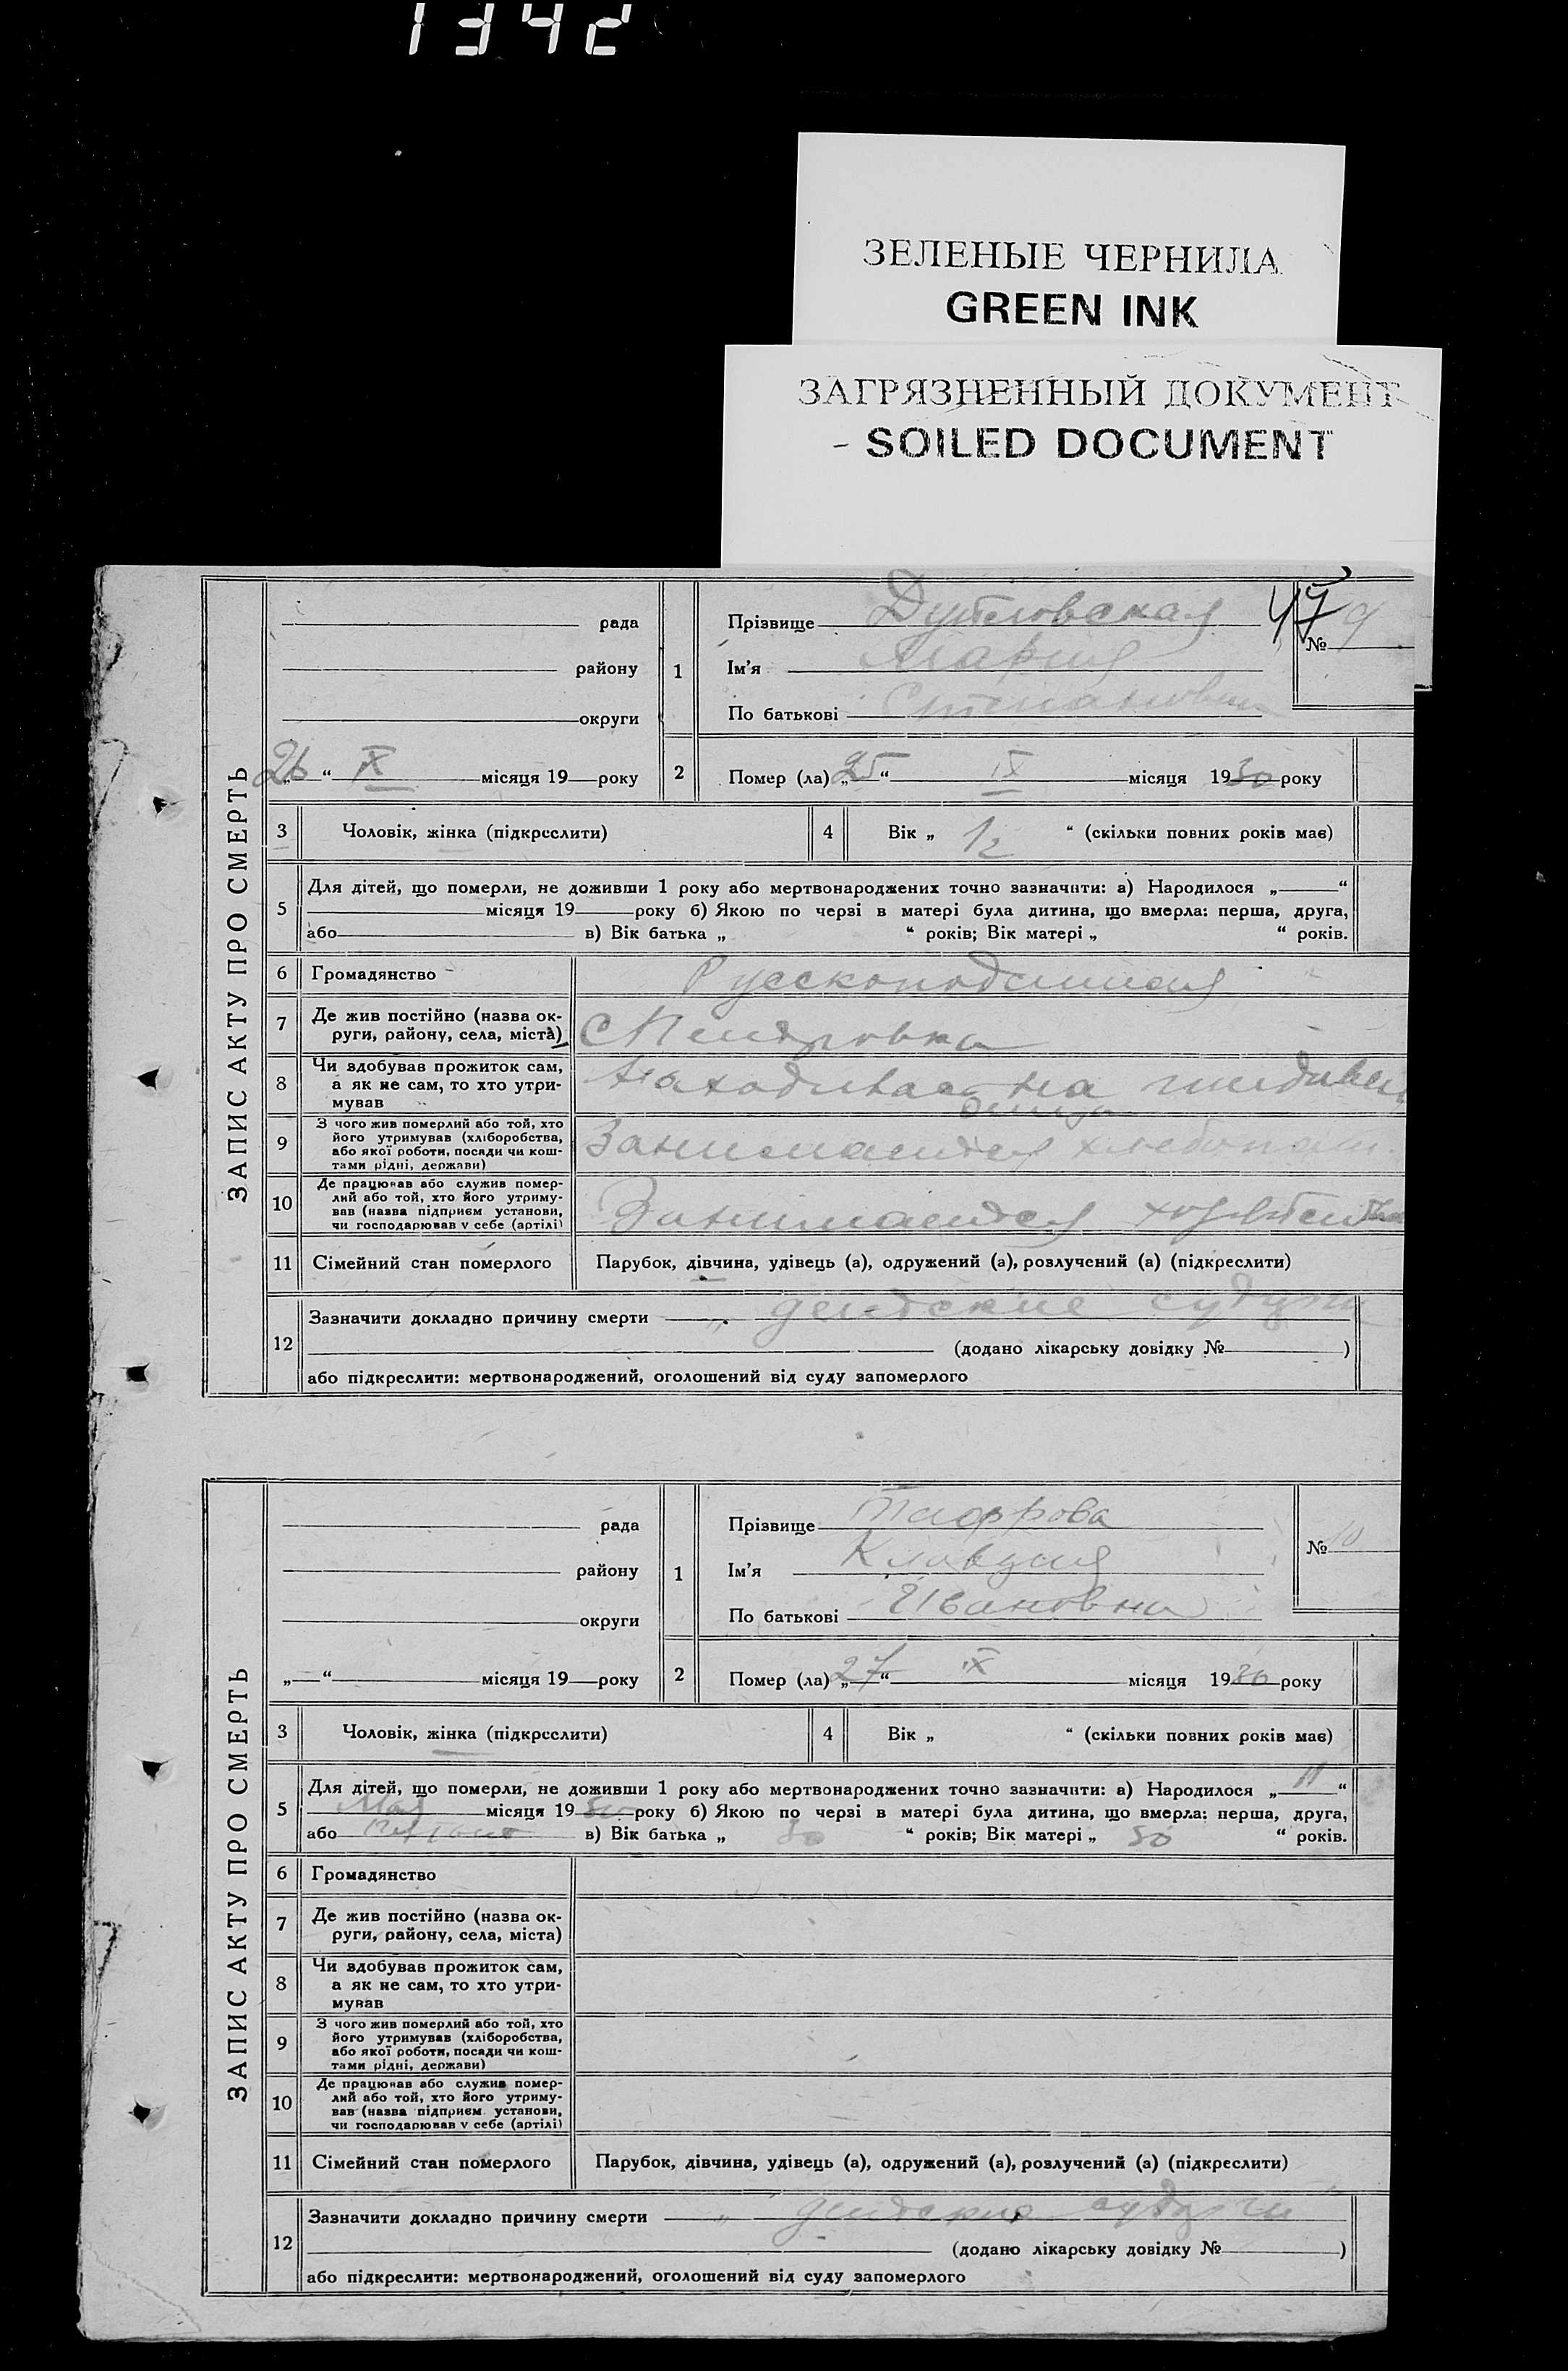 1342
ЗЕЛЕНЫЕ ЧЕРНИЛА
GREEN INK
ЗАГРЯЗНЕННЫЙ ДОКУМЕНТ
- SOILED DOCUMENT
ЗАПИС АКТУ ПРО СМЕРТЬ
рада
району
округи
26 “ IX місяця 19 року
1
Прізвище
Ім’я Мария
По батькові Степановна
№ 9
2
Помер (ла) „25“ IX місяця 1930 року
3 Чоловік, жінка (підкреслити)
4 Вік „ 1/2 “ (скільки повних років має)
5 Для дітей, що померли, не доживши 1 року або мертвонароджених точно зазначити: а) Народилося „ “
місяця 19 року б) Якою по черзі в матері була дитина, що вмерла: перша, друга,
або в) Вік батька „ “ років; Вік матері „ “ років.
6 Громадянство Русскоподданная
7 Де жив постійно (назва ок-
руги, району, села, міста) с Петровка
8 Чи здобував прожиток сам,
а як не сам, то хто утри-
мував находилась на иждивен
отца
9 З чого жив померлий або той, хто
його утримував (хліборобства,
або якої роботи, посади чи кош-
тами рідні, держави) Занимается хлебопаш
10 Де працював або служив помер-
лий або той, хто його утриму-
вав (назва підприєм. установи,
чи господарював у себе (артілі) Занимается
11 Сімейний стан померлого Парубок, дівчина, удівець (а), одружений (а), розлучений (а) (підкреслити)
12 Зазначити докладно причину смерти „ детские судуги
(додано лікарську довідку № )
або підкреслити: мертвонароджений, оголошений від суду запомерлого
ЗАПИС АКТУ ПРО СМЕРТЬ
рада
району
округи
„ “ місяця 19 року
1
Прізвище
Ім’я Клавдия
По батькові Ивановна
№ 10
2
Помер (ла) „27“ IX місяця 1930 року
3 Чоловік, жінка (підкреслити)
4 Вік „ “ (скільки повних років має)
5 Для дітей, що померли, не доживши 1 року або мертвонароджених точно зазначити: а) Народилося „ 11 “
Мая місяця 1930 року б) Якою по черзі в матері була дитина, що вмерла: перша, друга,
або в) Вік батька „ 30 “ років; Вік матері „ 30 “ років.
6 Громадянство
7 Де жив постійно (назва ок-
руги, району, села, міста)
8 Чи здобував прожиток сам,
а як не сам, то хто утри-
мував
9 З чого жив померлий або той, хто
його утримував (хліборобства,
або якої роботи, посади чи кош-
тами рідні, держави)
10 Де працював або служив помер-
лий або той, хто його утриму-
вав (назва підприєм. установи,
чи господарював у себе (артілі)
11 Сімейний стан померлого Парубок, дівчина, удівець (а), одружений (а), розлучений (а) (підкреслити)
12 Зазначити докладно причину смерти „ детские судуги
(додано лікарську довідку № )
або підкреслити: мертвонароджений, оголошений від суду запомерлого